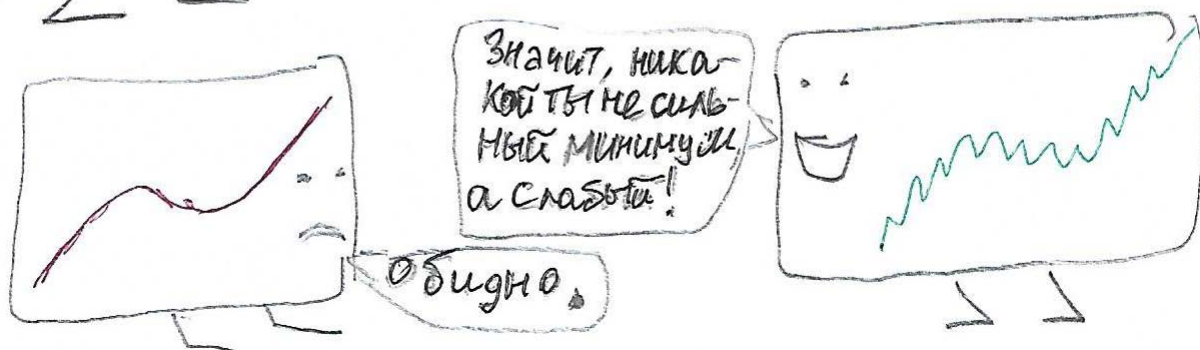 Значит, ника-
кой ты не силь-
ный минимум
а слабый!
Обидно.